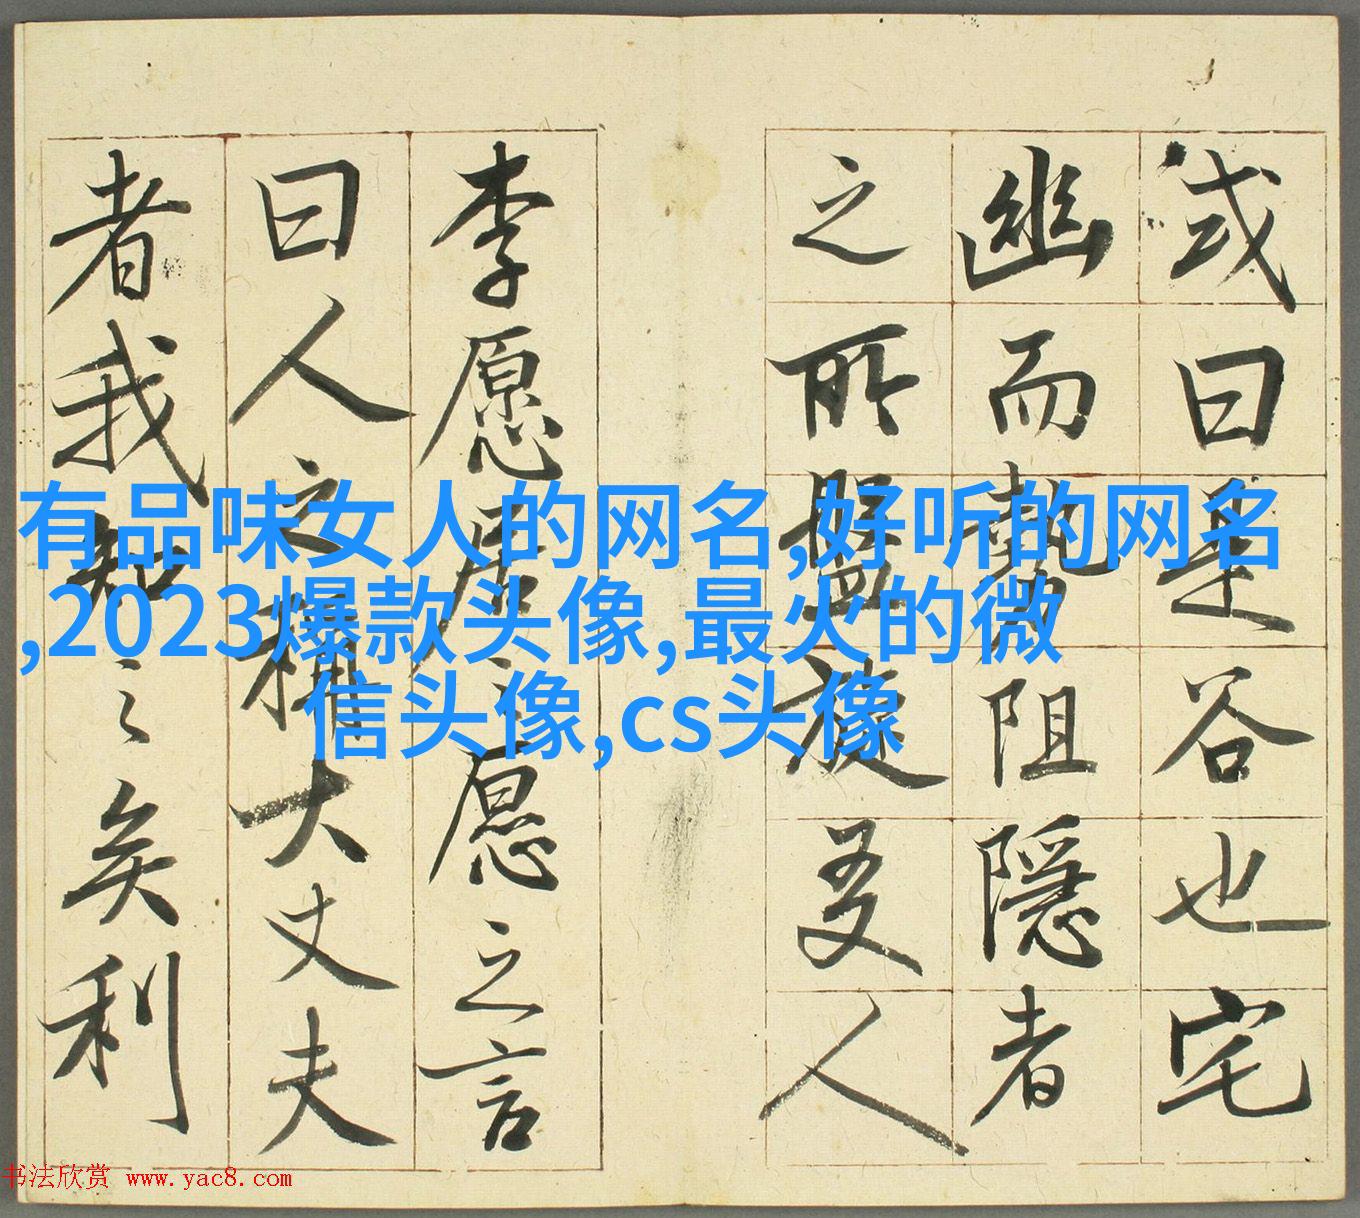 或曰是谷也宅
幽而勢阻隱者
之所盤旋友人
李愿居之愿之言
曰人之稱大丈夫
者我知之矣利
有品味女人的网名,好听的网名
,2023爆款头像,最火的微
信头像,cs头像
书法欣赏 www.yac8.com